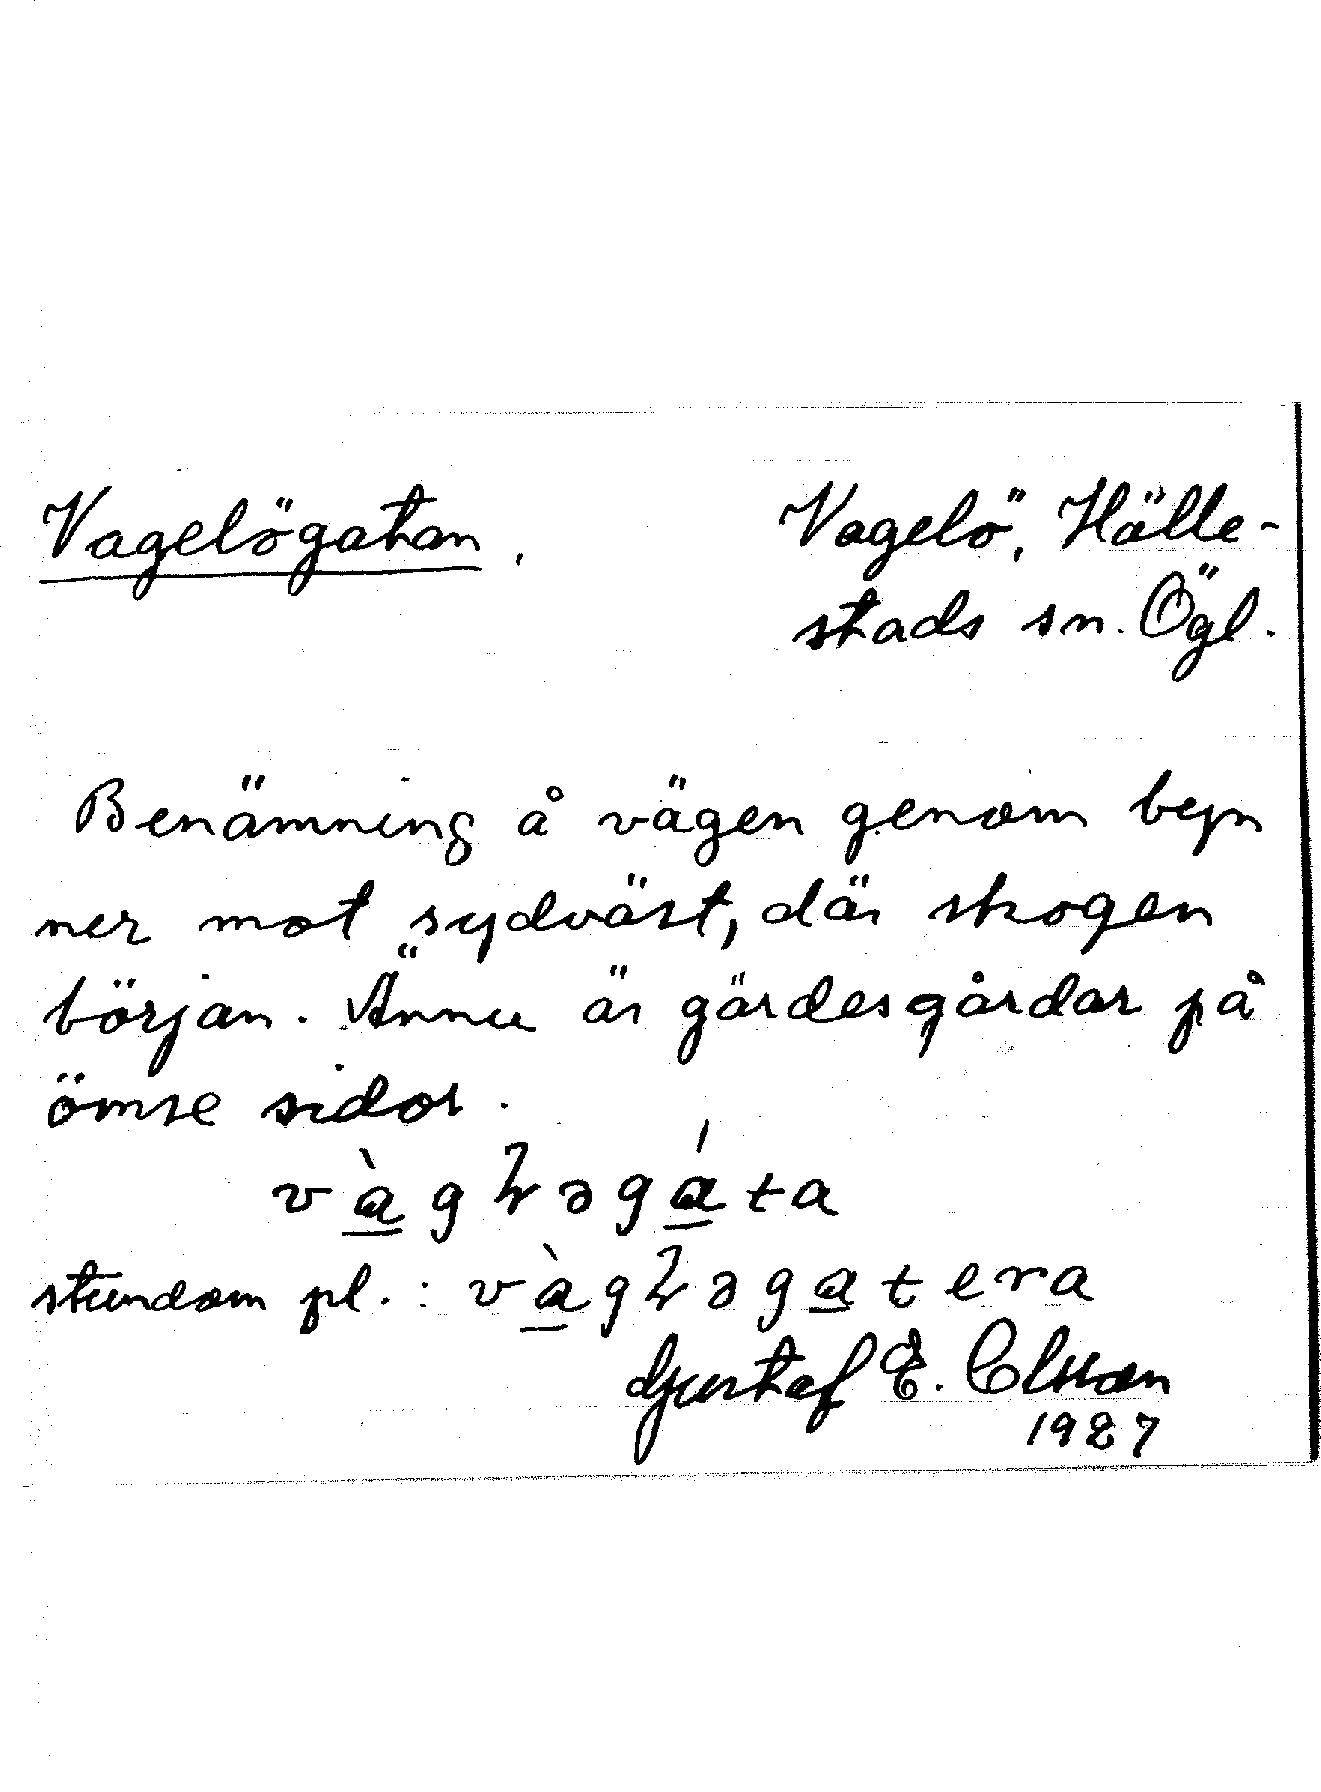 Vagelögatan.
Vagelö, Hälle-
stads sn. Ögl.
Benämning å vägen genom byn
ner mot sydväst, där skogen
börjar. Ännu är gärdesgårdar på
ömse sidor.
stundom pl. :
Gustaf E. Olsson
1927